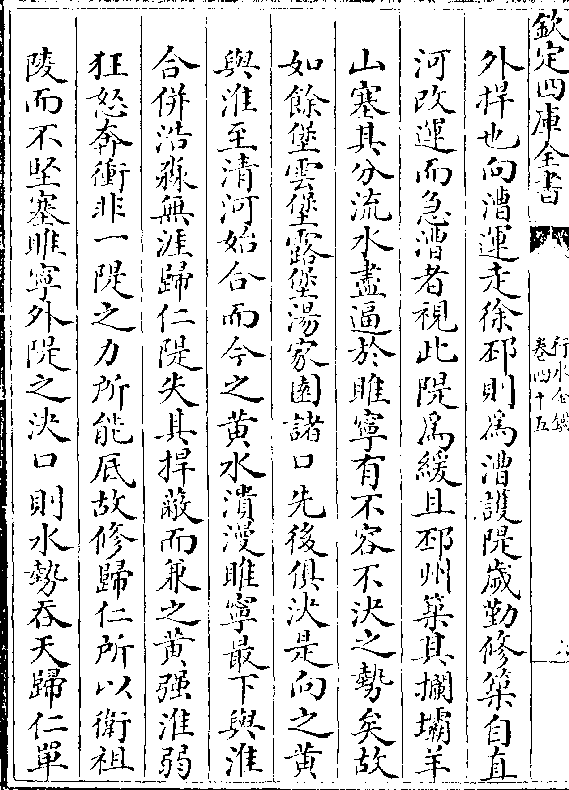 欽定四庫全書
行水金鑑
卷四十五
六
外捍也向漕運走徐邳則為漕護隄歲勤修築自直
河改運而急漕者視此隄為緩且邳州築其攔壩羊
山塞其分流水盡逼於睢寧有不容不決之勢矣故
如餘堡雲堡露堡湯家園諸口先後俱決是向之黃
與淮至清河始合而今之黃水潰漫睢寧最下與淮
合併浩淼無涯歸仁隄失其捍蔽而兼之黃强淮弱
狂怒奔衝非一隄之力所能底故修歸仁所以衛祖
陵而不堅塞睢寧外隄之決口則水勢吞天歸仁單